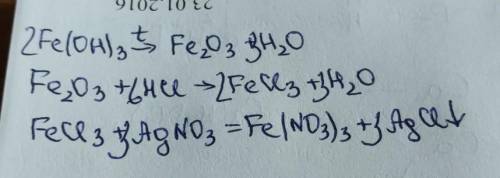 23.01.2016
2Fe(OH)₃ →ᵗ Fe₂O₃ + 3H₂O
Fe₂O₃ + 6HCl → 2FeCl₃ + 3H₂O
FeCl₃ + 3AgNO₃ = Fe(NO₃)₃ + 3AgCl↓